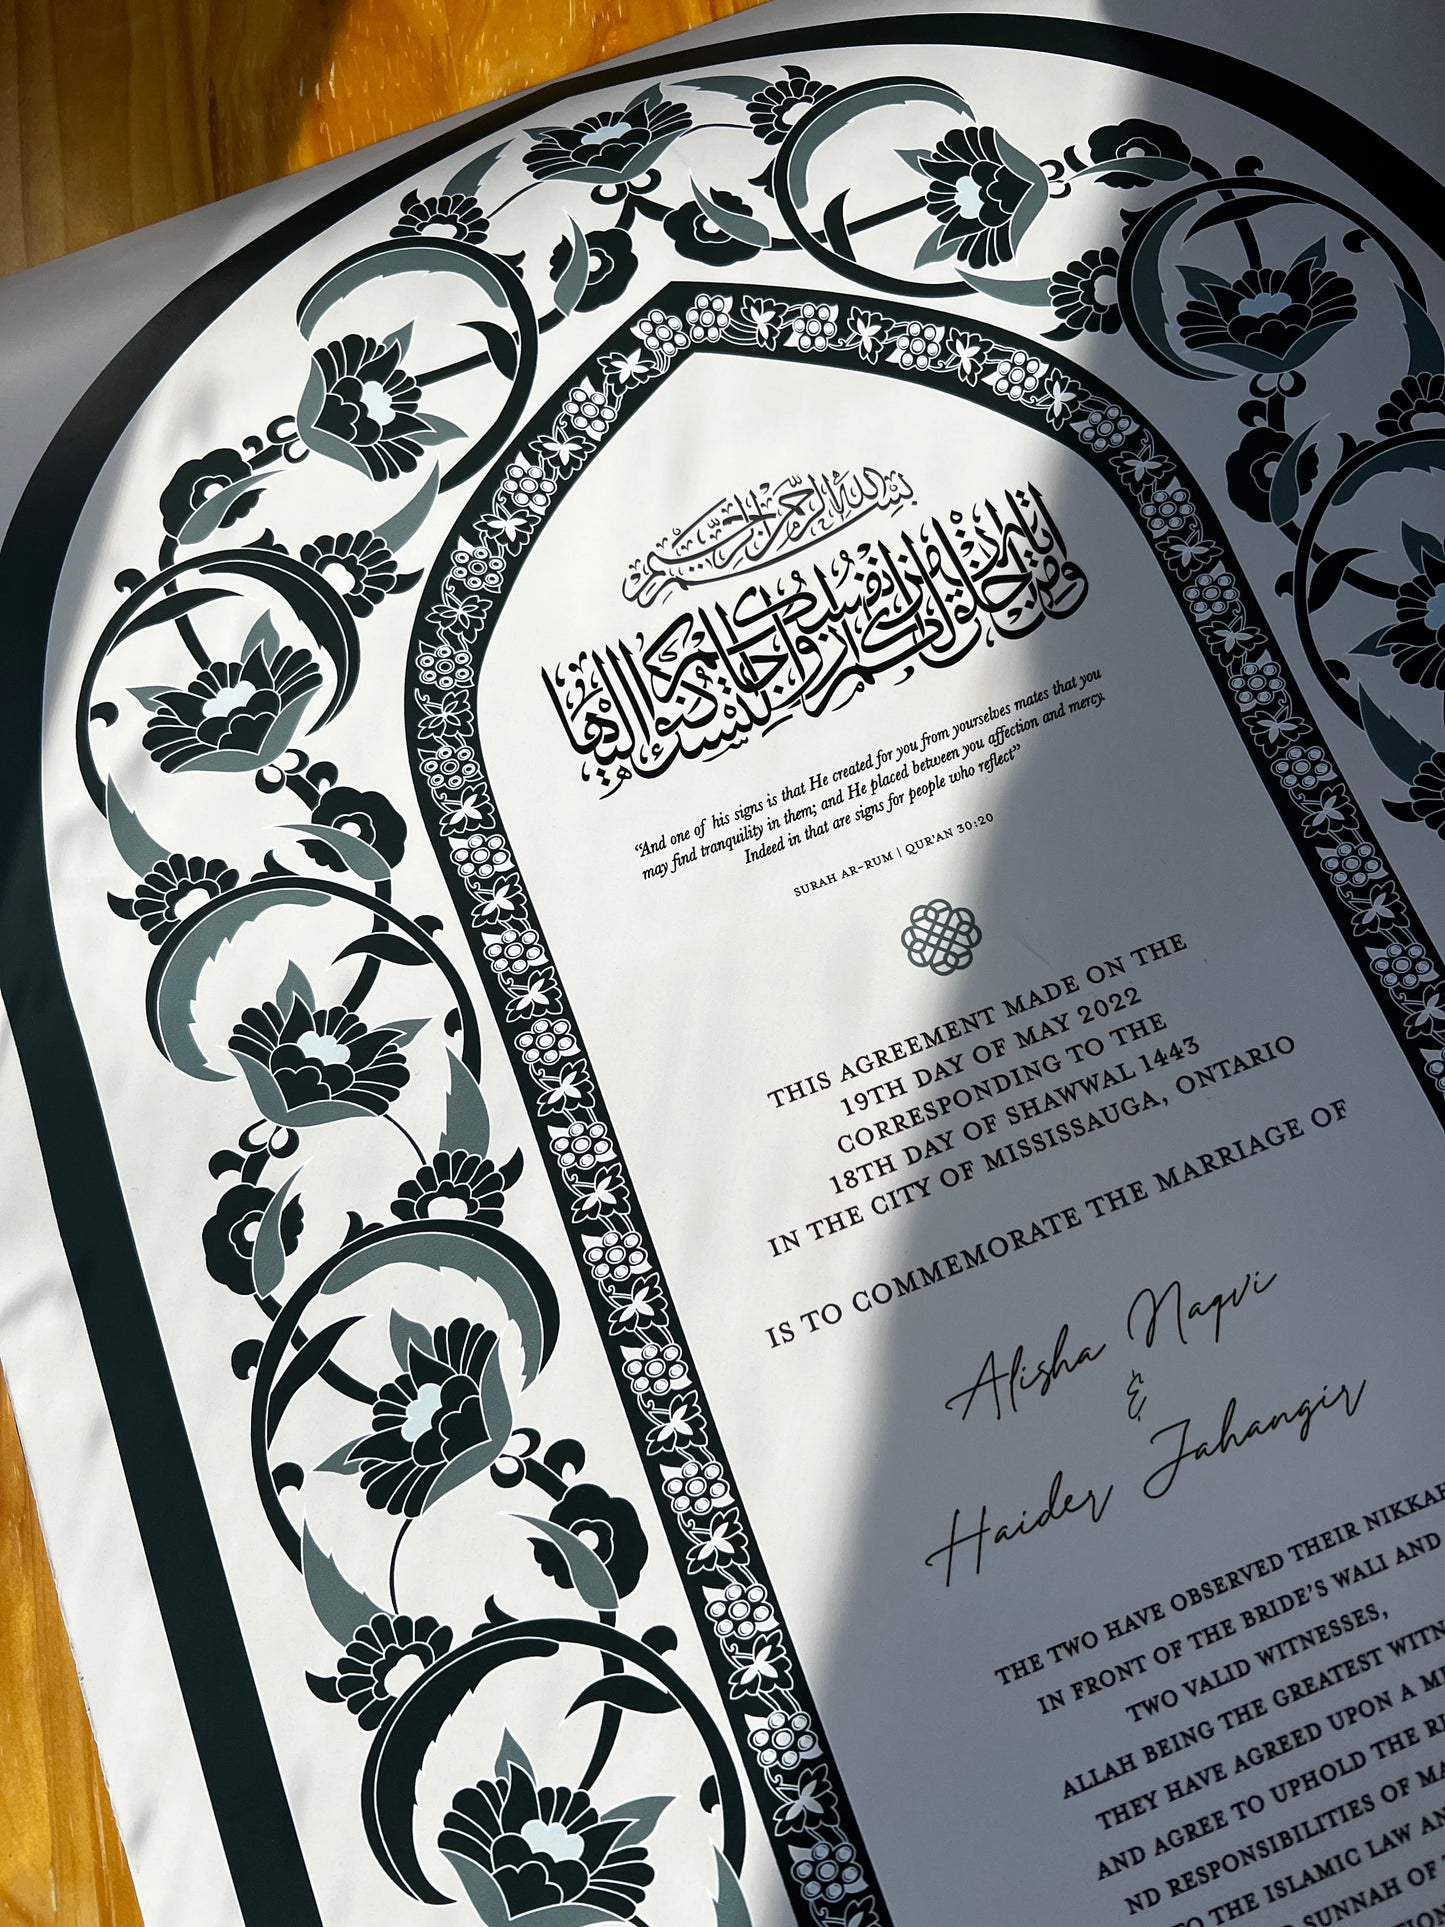 بسم الله الرحمن الرحيم
ومن آياته أن خلق لكم من أنفسكم أزواجا لتسكنوا إليها
“And one of his signs is that He created for you from yourselves mates that you
may find tranquility in them; and He placed between you affection and mercy.
Indeed in that are signs for people who reflect”
SURAH AR-RUM | QUR'AN 30:20
THIS AGREEMENT MADE ON THE
19TH DAY OF MAY 2022
CORRESPONDING TO THE
18TH DAY OF SHAWWAL 1443
IN THE CITY OF MISSISSAUGA, ONTARIO
IS TO COMMEMORATE THE MARRIAGE OF
Alisha Naqvi
&
Haider Jahangir
THE TWO HAVE OBSERVED THEIR NIKKAH
IN FRONT OF THE BRIDE'S WALI AND
TWO VALID WITNESSES,
ALLAH BEING THE GREATEST
THEY HAVE AGREED UPON A
AND AGREE TO UPHOLD THE
ND RESPONSIBILITIES OF
TO THE ISLAMIC LAW
SUNNAH OF